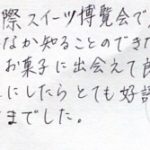 際スイーツ博覧会で
なか知ることのでき
お菓子に出会えて良
にしたらとても好評
までした。